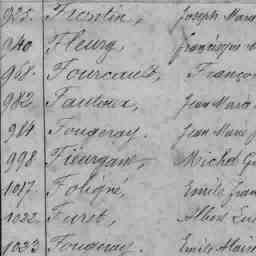 925. Frentin, Joseph Marie
940 Fleury, François
968. Fourcault, Franço
982. Fautoux, Jean Marie
984 Fougeray. Jean Marie
998 Fieurgant, Michel
1017. Foligné, Emile Fran
1022 Furet, Albert
1023 Fougeray. Emile